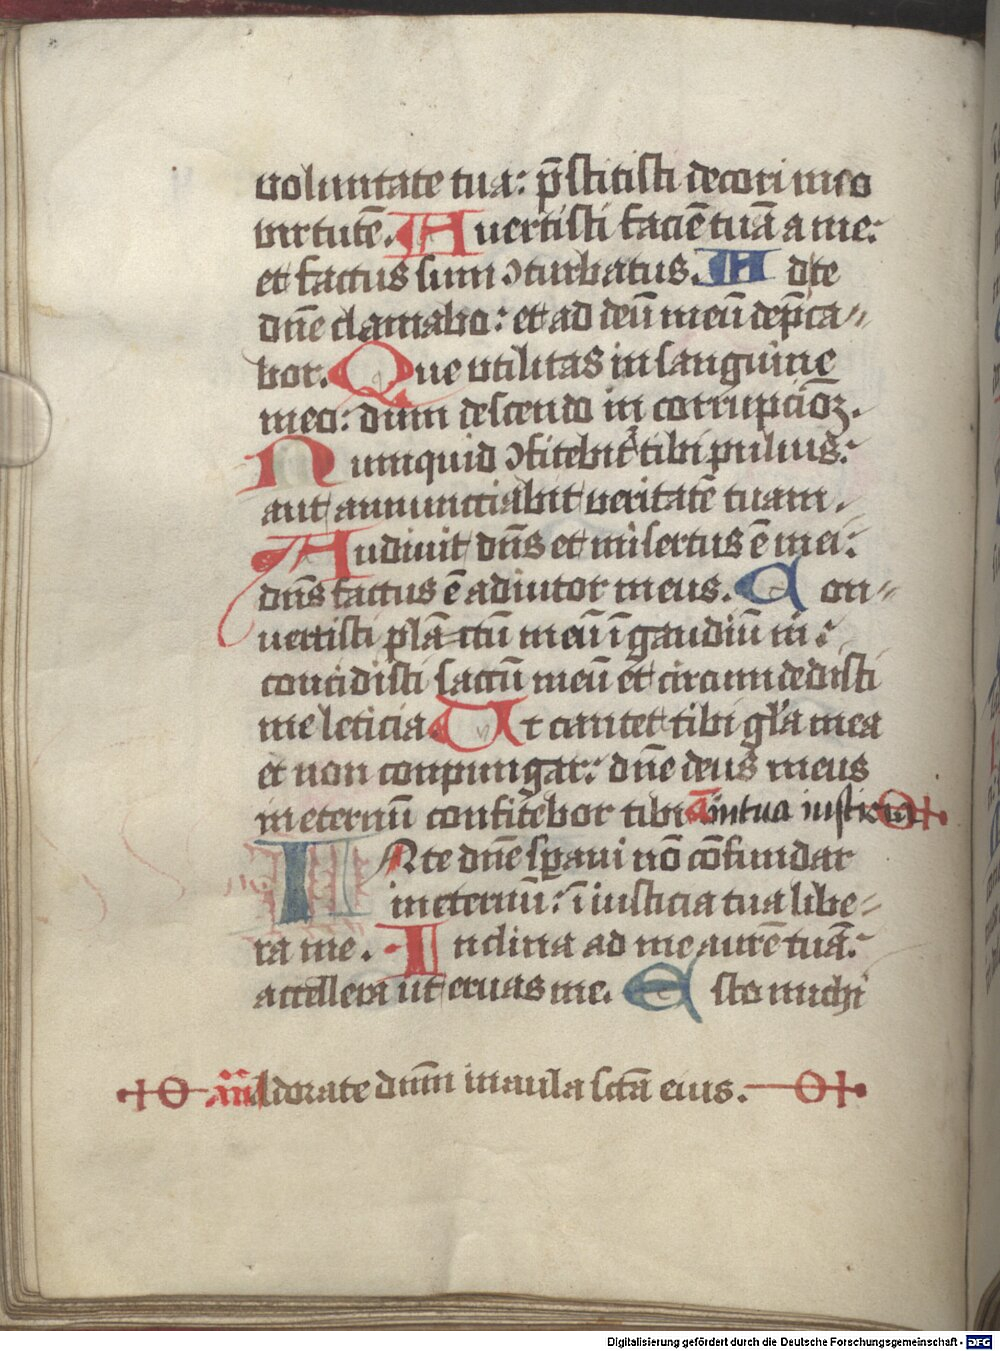 voluntate tua: p̄stitisti decori meo
virtutē. Auertisti faciē tuā a me:
et factus sum ↄturbatus. Ad te
dn̄e clamabo: et ad deū meū dep̄ca-
bor. Que vtilitas in sanguine
meo: dum descendo in corrupciōꝫ.
Numquid ↄfitebit᷑ tibi puluis:
aut annunctiabit veritatē tuam.
Audiuit dn̄s et misertus ē mei:
dn̄s factus ē adiutor meus. Con-
uertisti plāctū meū ī gaudiū m̄:
concidisti saccū meū et circumdedisti
me leticia. Ut cantet tibi gl̄a mea
et non conpungar: dn̄e deus meus
in eternū confitebor tibi. a in tua iusticia
IN te dn̄e sp̄aui nō cōfundar
in eternū: ī iusticia tua libe-
ra me. Inclina ad me aurē tuā:
accellera ut eruas me. Esto michi
an̄ Adorate dnm̄ in aula sc̄tā eius.
Digitalisierung gefördert durch die Deutsche Forschungsgemeinschaft - DFG